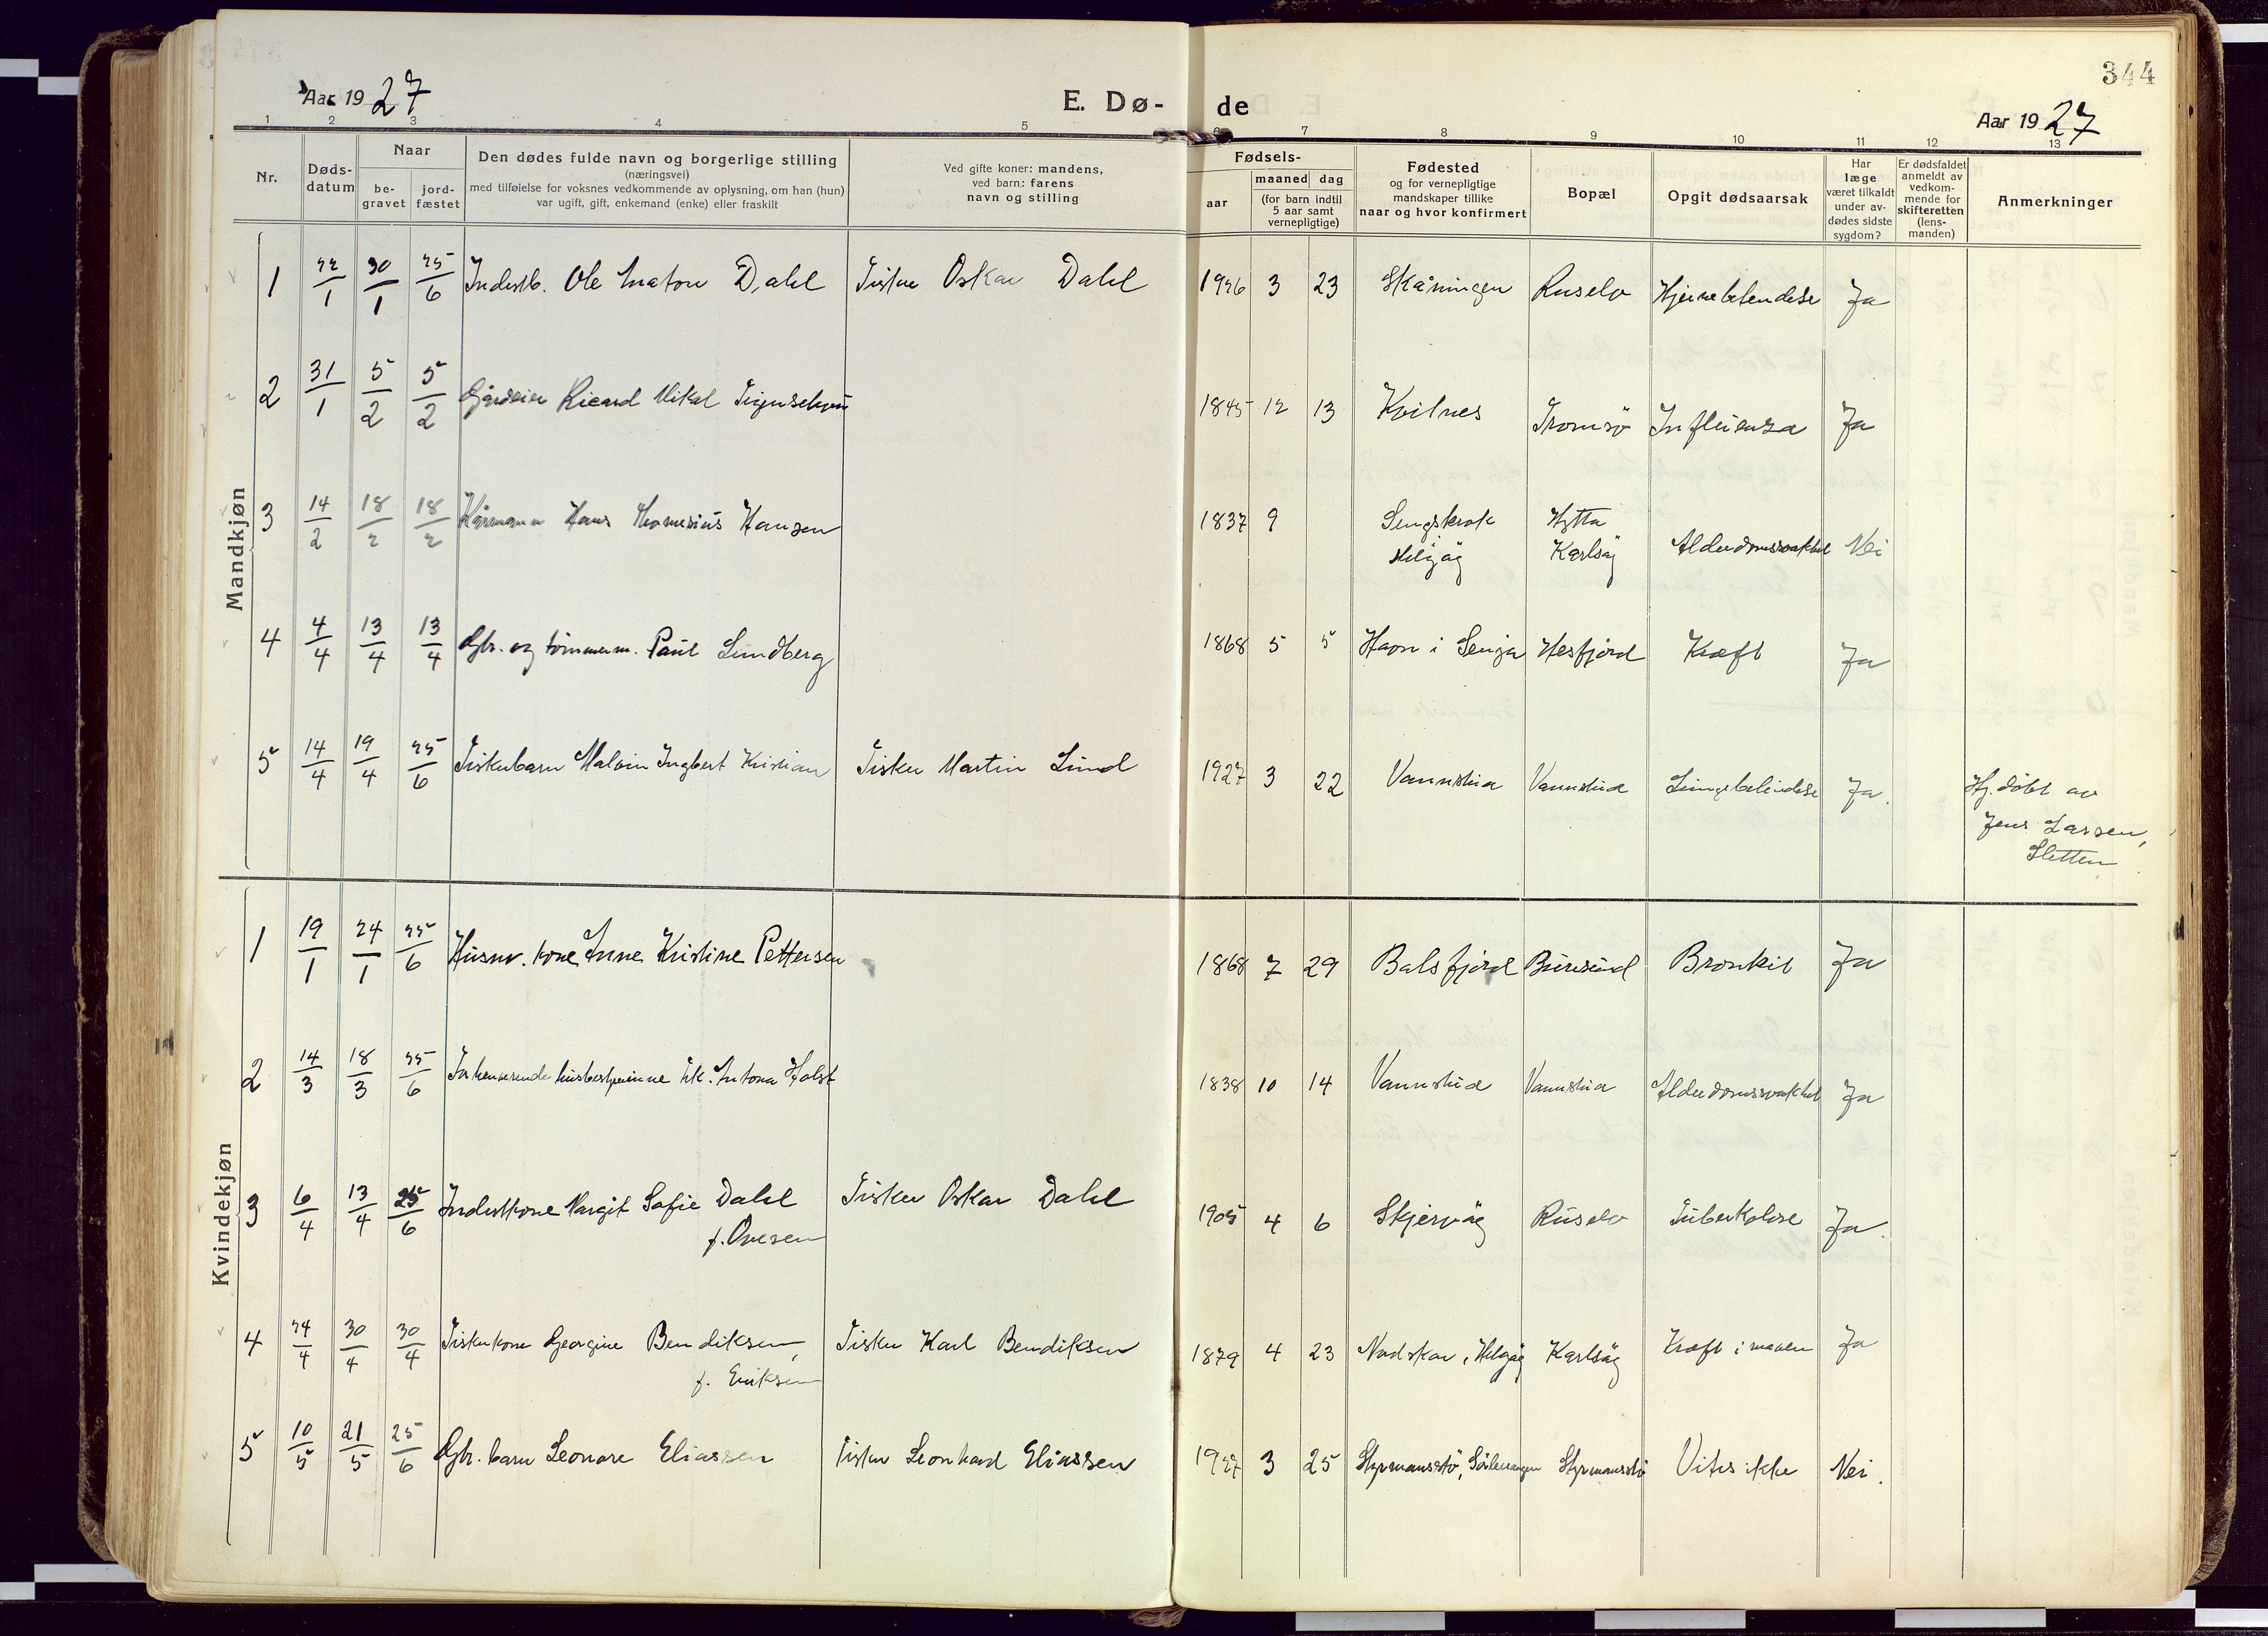 344
Aar 1927
E. Dø-
de
Aar 1927
1 2 3 4 5 6 7 8 9 10 11 12 13
Nr.
Døds-
datum
Naar
be-
gravet
jord-
fæstet
Den dødes fulde navn og borgerlige stilling
(næringsvei)
med tilføielse for voksnes vedkommende av oplysning, om han (hun)
var ugift, gift, enkemand (enke) eller fraskilt
Ved gifte koner: mandens,
ved barn: farens
navn og stilling
Fødsels-
aar
maaned dag
(for barn indtil
5 aar samt
vernepligtige)
Fødested
og for vernepligtige
mandskaper tillike
naar og hvor konfirmert
Bopæl
Opgit dødsaarsak
Har
læge
været tilkaldt
under av-
dødes sidste
sygdom?
Er dødsfaldet
anmeldt av
vedkom-
mende for
skifteretten
(lens-
manden)
Anmerkninger
Mandkjøn
1 22/1 30/1 25/6 Inderstb. Ole Dahl Fisker Oskar Dahl 1926 3 23 Skåningen Ruselv Hjernebetendelse Ja
2 31/1 5/2 5/2 Gårdeier Ricard Mikal 1845 12 13 Kvitnes Tromsö Influensa Ja
3 14/2 18/2 18/2 Kårmann Hans Hansen 1837 9 Helgöy Hytta Karlsöy Alderdomssvakhet Nei
4 4/4 13/4 13/4 Gbr. og tömmerm. Paul Lundberg 1868 5 5 Havn i Senja Hesfjord Kræft Ja
5 14/4 19/4 25/6 Fiskerbarn Malvin Ingbert Kristian Fisker Martin Lund 1927 3 22 Vannstua Vannstua Lungebetendelse Ja. Hj. döbt av
Jens Larsen,
Sletten
Kvindekjøn
1 19/1 24/1 25/6 Husm. kone Anne Kristine Pettersen 1868 7 29 Balsfjord Buresund Bronkit Ja
2 14/3 18/3 25/6 Forhenværende husbestyrerinne frk. Antona Holst 1838 10 14 Vannstua Vannstua Alderdomssvakhet Ja
3 6/4 13/4 25/6 Inderstkone Margit Sofie Dahl Fisker Oskar Dahl 1905 4 6 Skjervöy Ruselv Tuberkolose Ja.
f. Ovesen
4 24/4 30/4 30/4 Fiskerkone Georgine Bendiksen, Fisker Karl Bendiksen 1879 4 23 Nordskar, Helgöy Karlsöy Kræft i maven Ja
f. Eriksen
5 10/5 21/5 25/6 Gbr. barn Leonore Eliassen Fisker Leonhard Eliassen 1927 3 25 Styrmansstö, Sörlenangen Styrmansstö Vites ikke Nei.